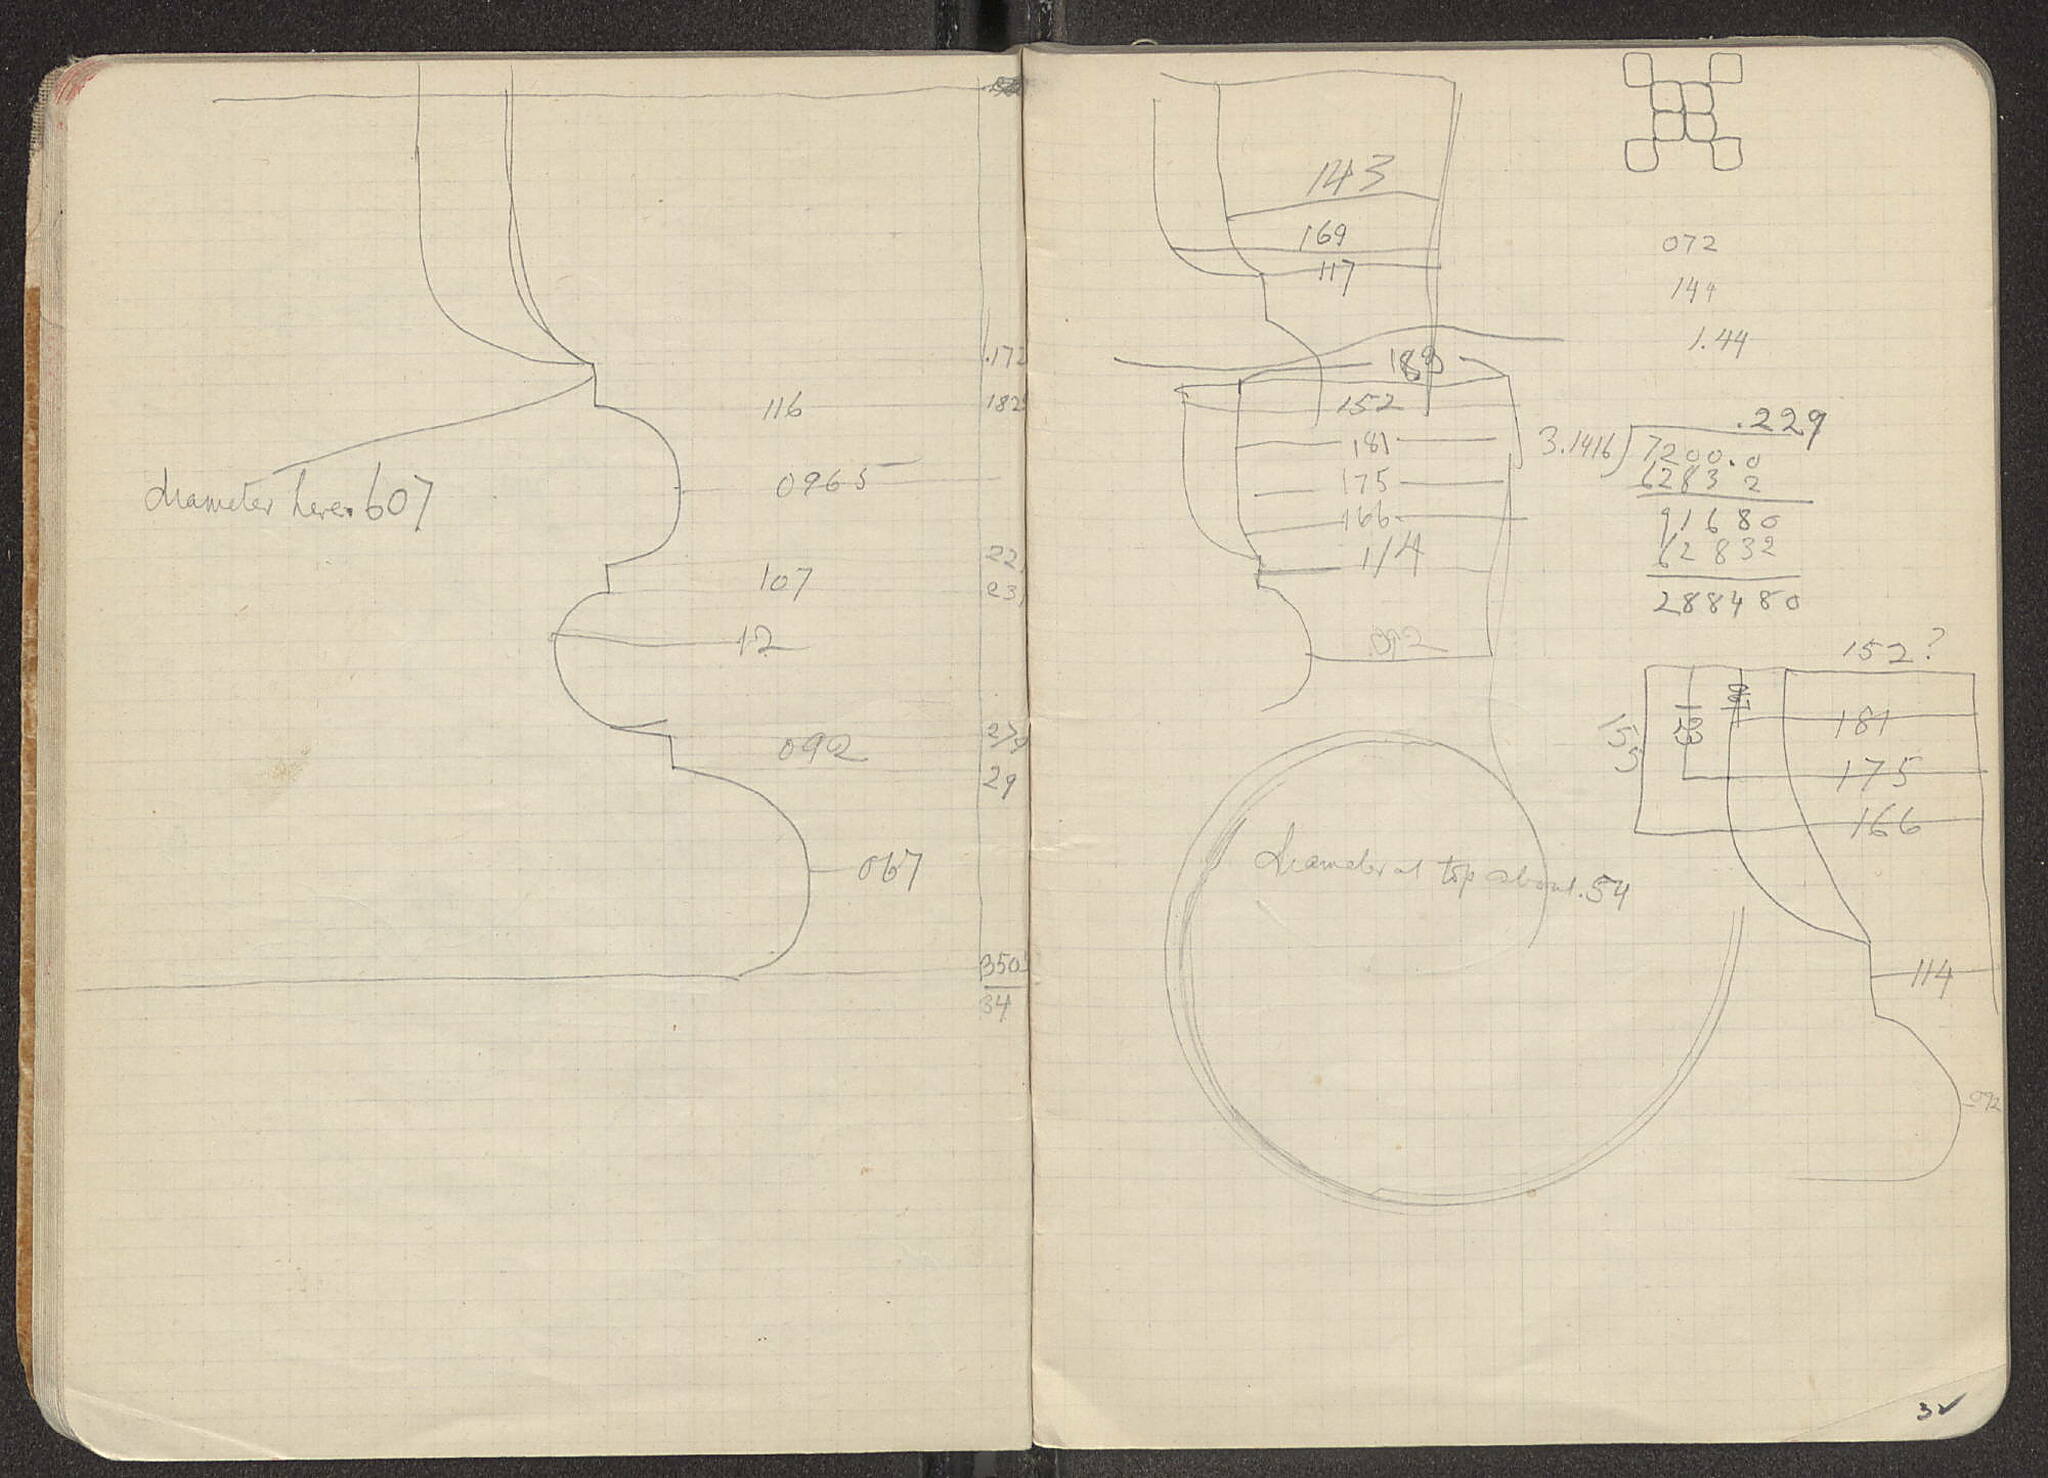 .172
116
182
diameter here .607
0965
22
107
23
12
092
29
067
350
34
143
169
117
072
144
1.44
189
152
181
175
166
114
092
.229
3.1416) 7200.0
6283 2
91680
62832
288480
152?
181
175
166
155
114
072
Diameter at top about .54
32